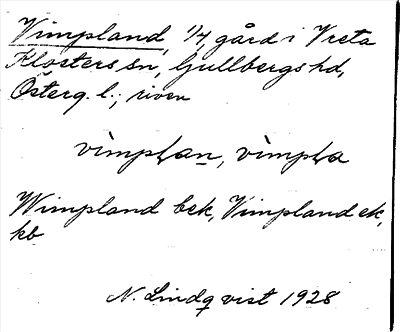 Vimpland, 1/4, gård i Vreta
Klosters sn, Gullbergs hd,
Österg. l.; riven
vìmpłan, vìmpła
Wimpland bek, Vimpland ek,
kb
N. Lindqvist 1928